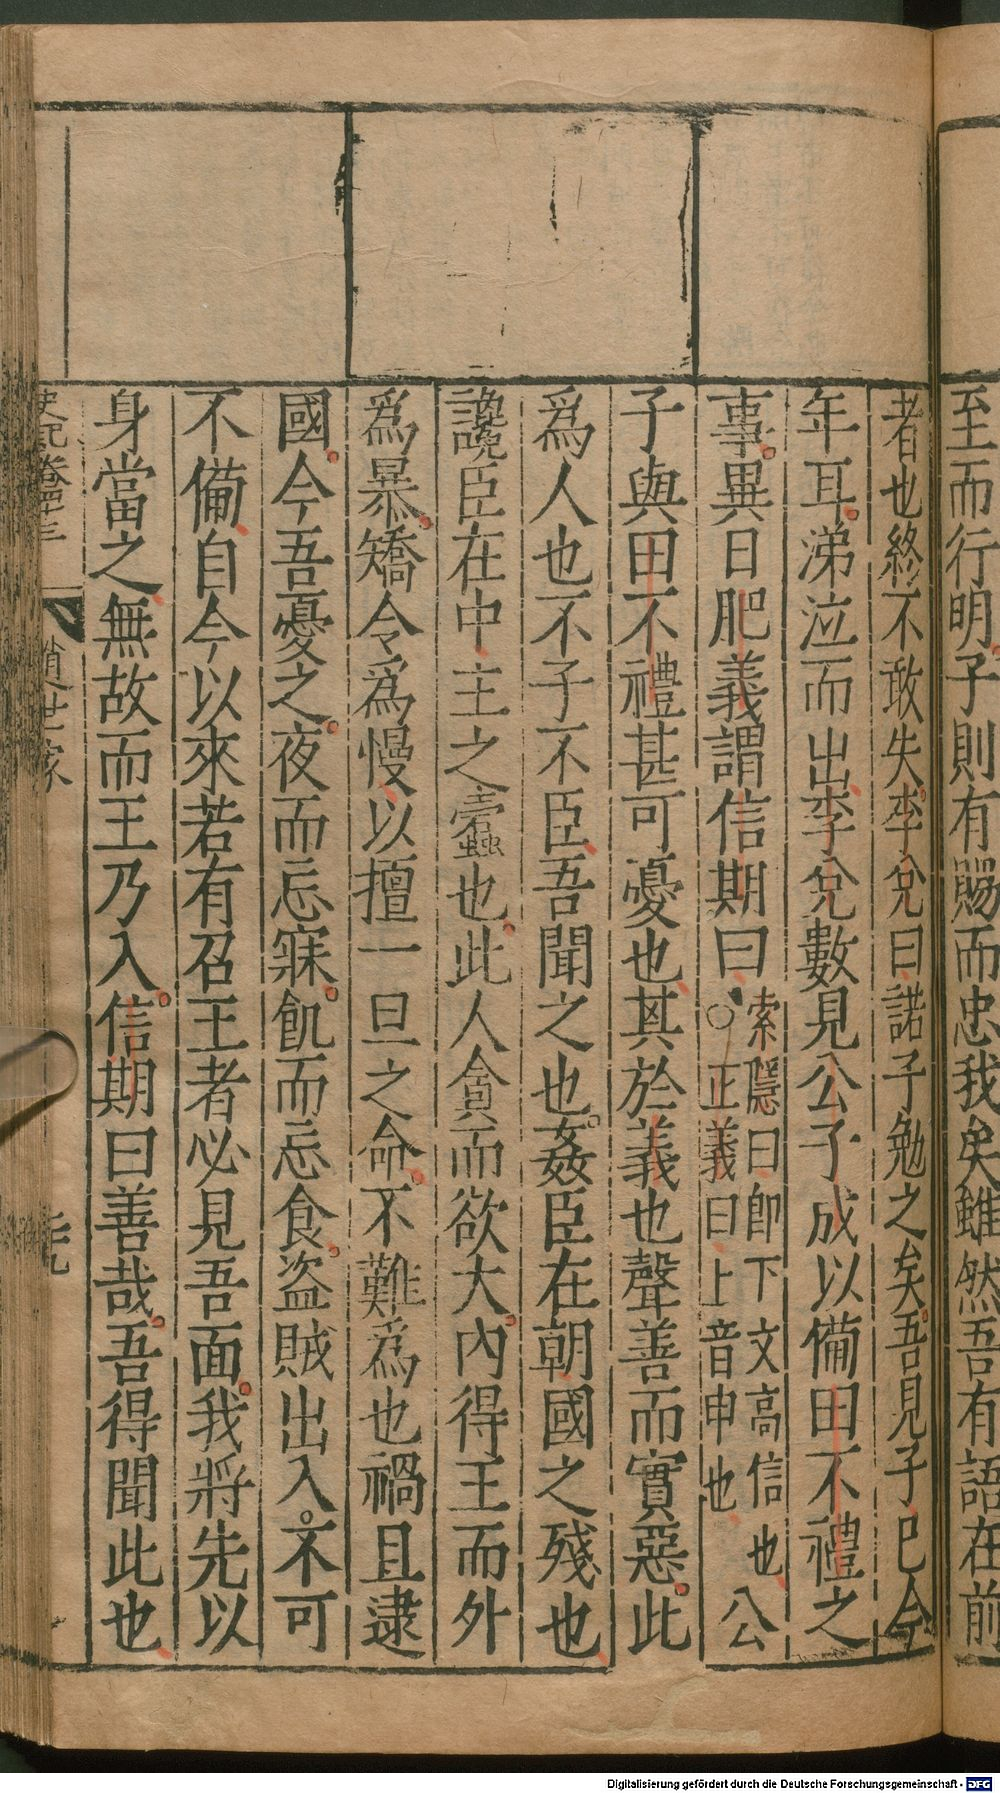 至而行明子則有賜而忠我矣雖然吾有語在前
者也終不敢失李兌曰諾子勉之矣吾見子已今
年耳涕泣而出李兌數見公子成以備田不禮之
事異日肥義謂信期曰
索隱曰即下文高信也
○正義曰上音申也
公
子與田不禮甚可憂也其於義也聲善而實惡此
為人也不子不臣吾聞之也姦臣在朝國之殘也
讒臣在中主之蠹也此人貪而欲大內得王而外
為暴矯令為慢以擅一旦之命不難為也禍且逮
國今吾憂之夜而忘寐飢而忘食盜賊出入不可
不備自今以來若有召王者必見吾面我將先以
身當之無故而王乃入信期曰善哉吾得聞此也
史記卷四十三
趙世家
Digitalisierung gefördert durch die Deutsche Forschungsgemeinschaft - DFG